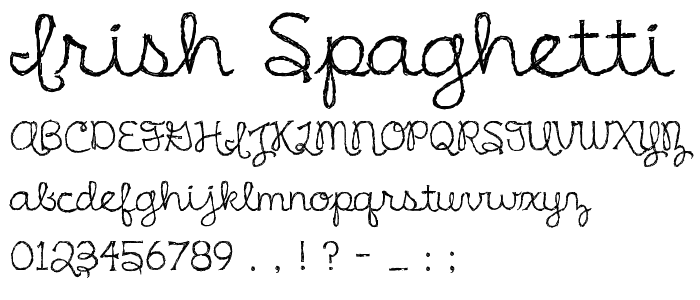 Irish Spaghetti
ABCDEFGHIJKLMNOPQRSTUVWXYZ
abcdefghijklmnopqrstuvwxyz
0123456789 . , ! ? - _ : ;